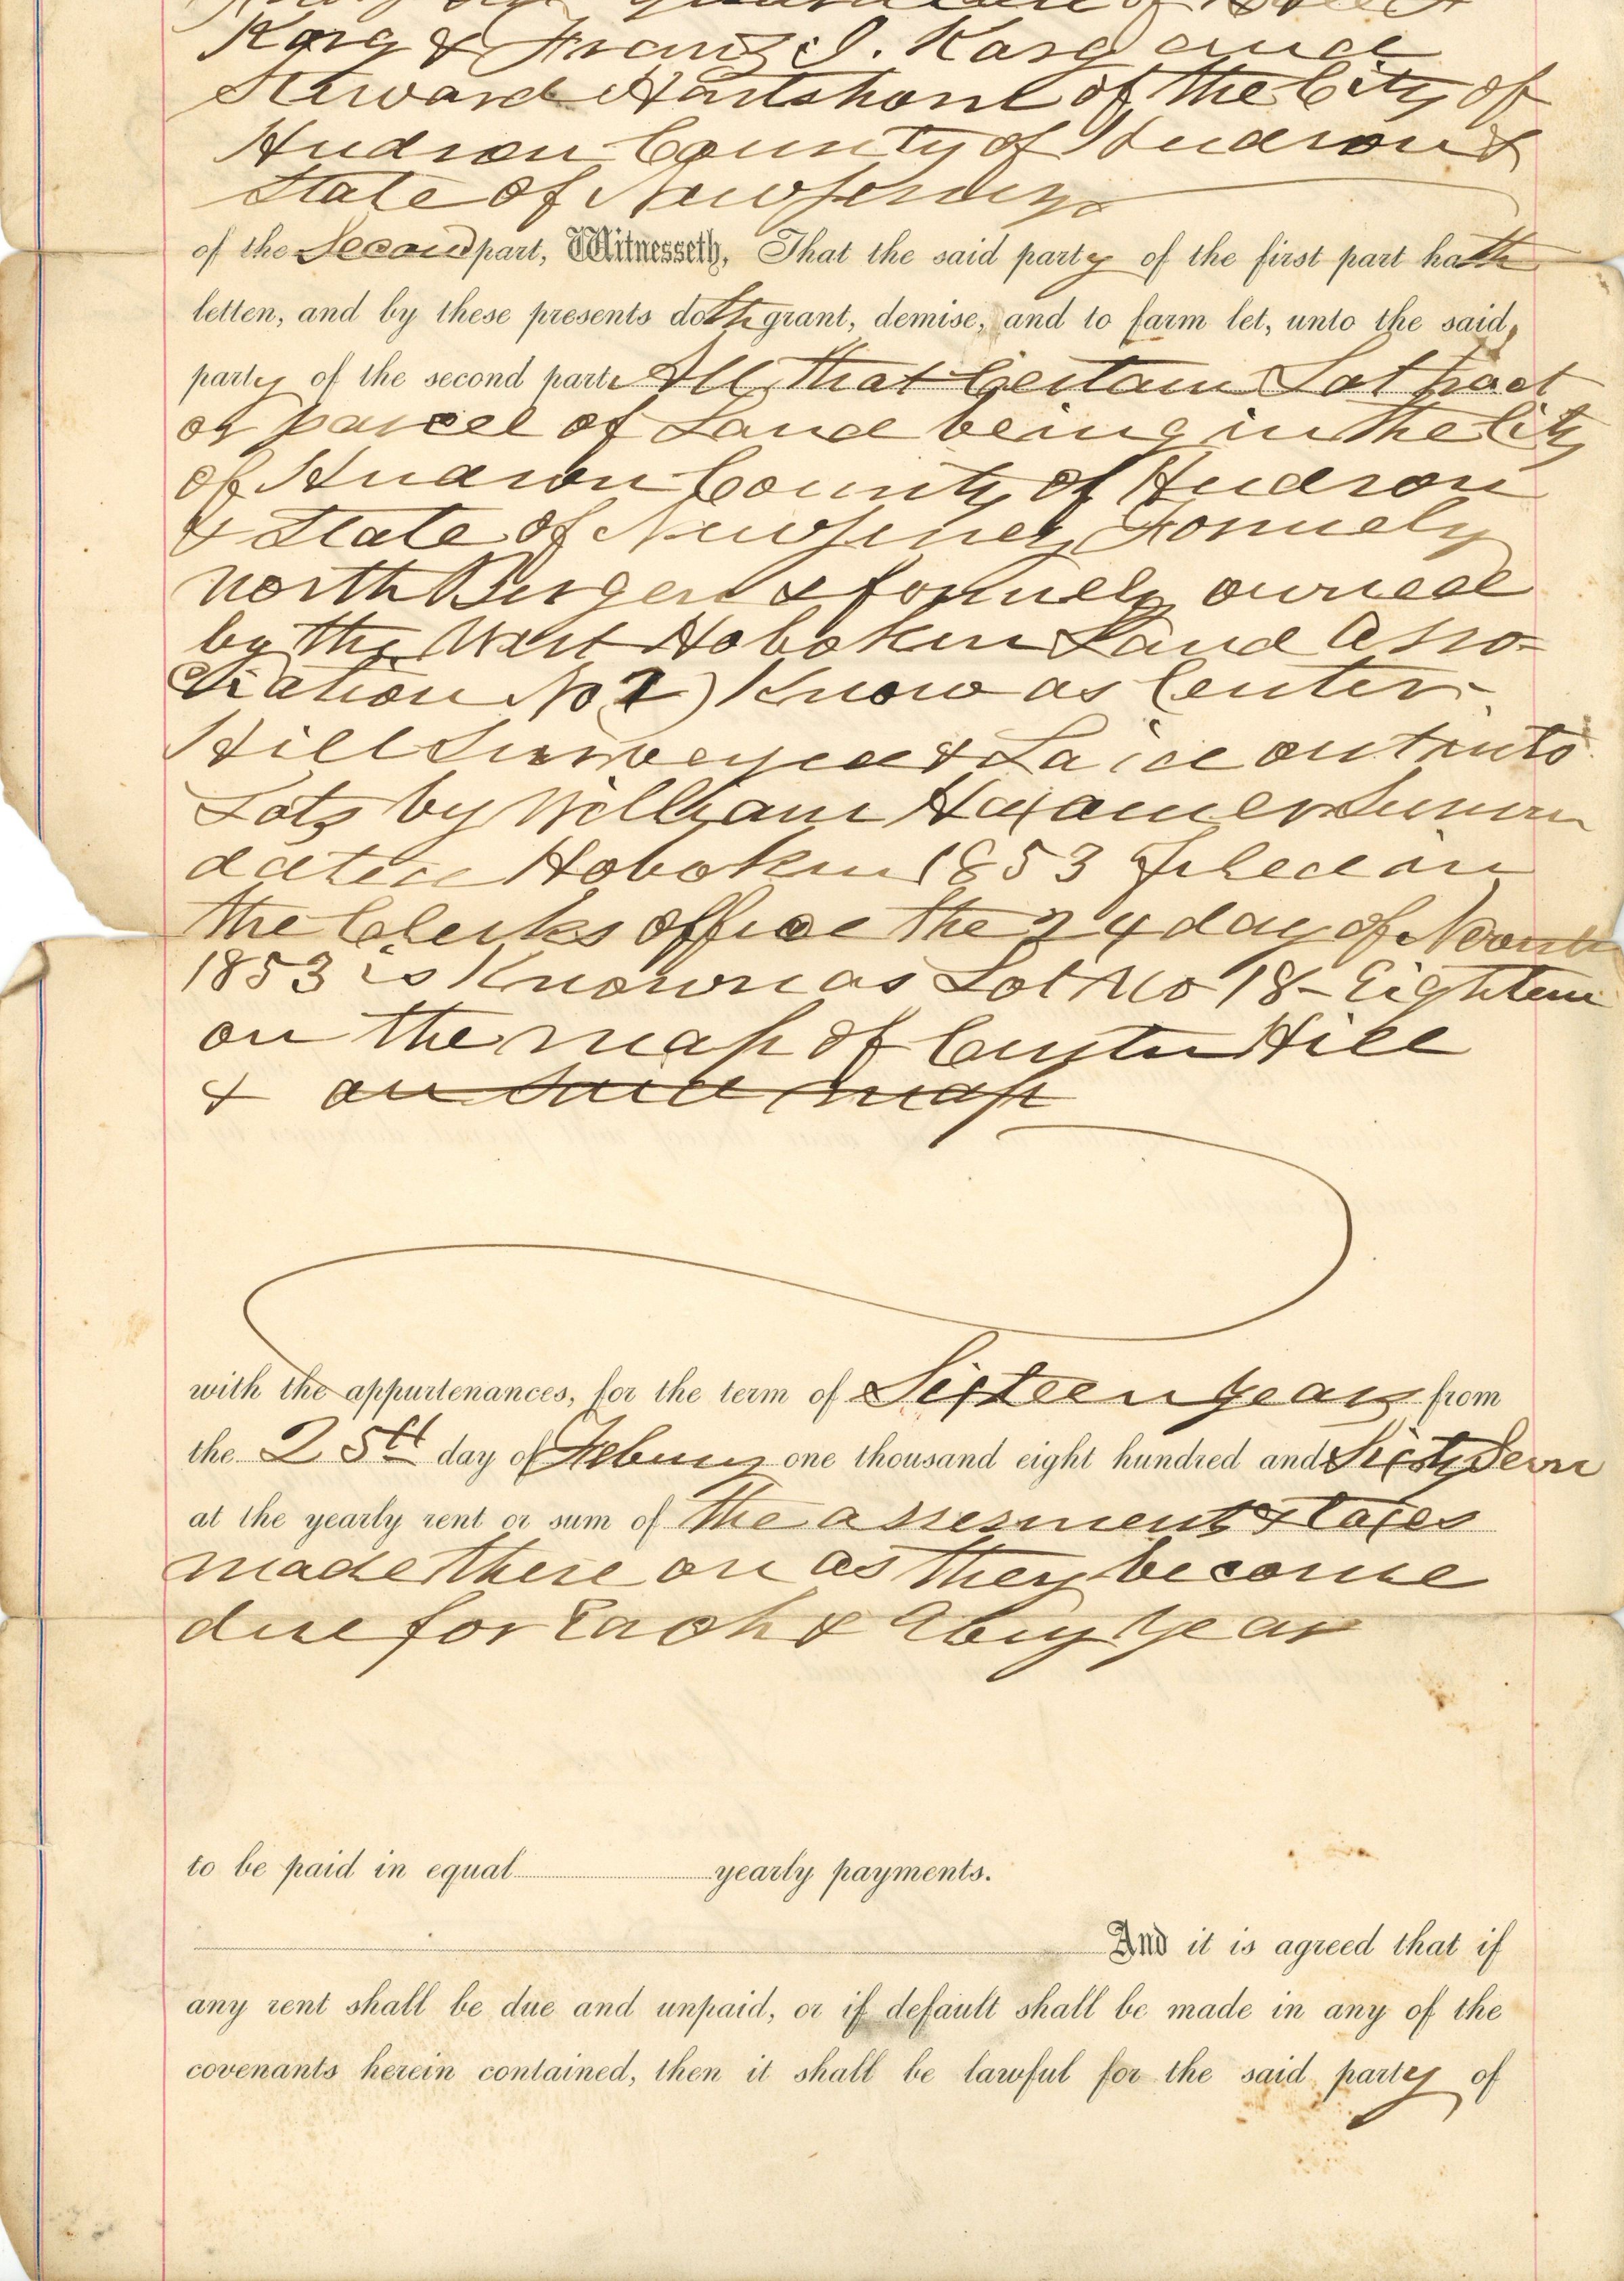 Karg & Franz J. Karg and
Steward Hartshorn of the City of
Hudson County of Hudson &
State of New Jersey
of the Second part, Witnesseth, That the said party of the first part hath
letten, and by these presents doth grant, demise, and to farm let, unto the said,
party of the second part All that Certain Lot tract
or parcel of Land being in the City
of Hudson County of Hudson
& State of New Jersey Formely
north Bergen & formely owned
by the West Hoboken Land Asso-
ciation No 2) Know as Center
Hill Surveyed & Laid out into
Lots by William Hexamer
dated Hoboken 1853 Filed in
the Clerks office the 24 day of
1853 is Known as Lot No 18- Eighteen
on the map of Center Hill
& on said map
with the appurtenances, for the term of Sixteen years from
the 25th day of one thousand eight hundred and Sixty
at the yearly rent or sum of the assesments & taxes
made there on as they become
due for Each & Every Year
to be paid in equal yearly payments.
And it is agreed that if
any rent shall be due and unpaid, or if default shall be made in any of the
covenants herein contained, then it shall be lawful for the said party of